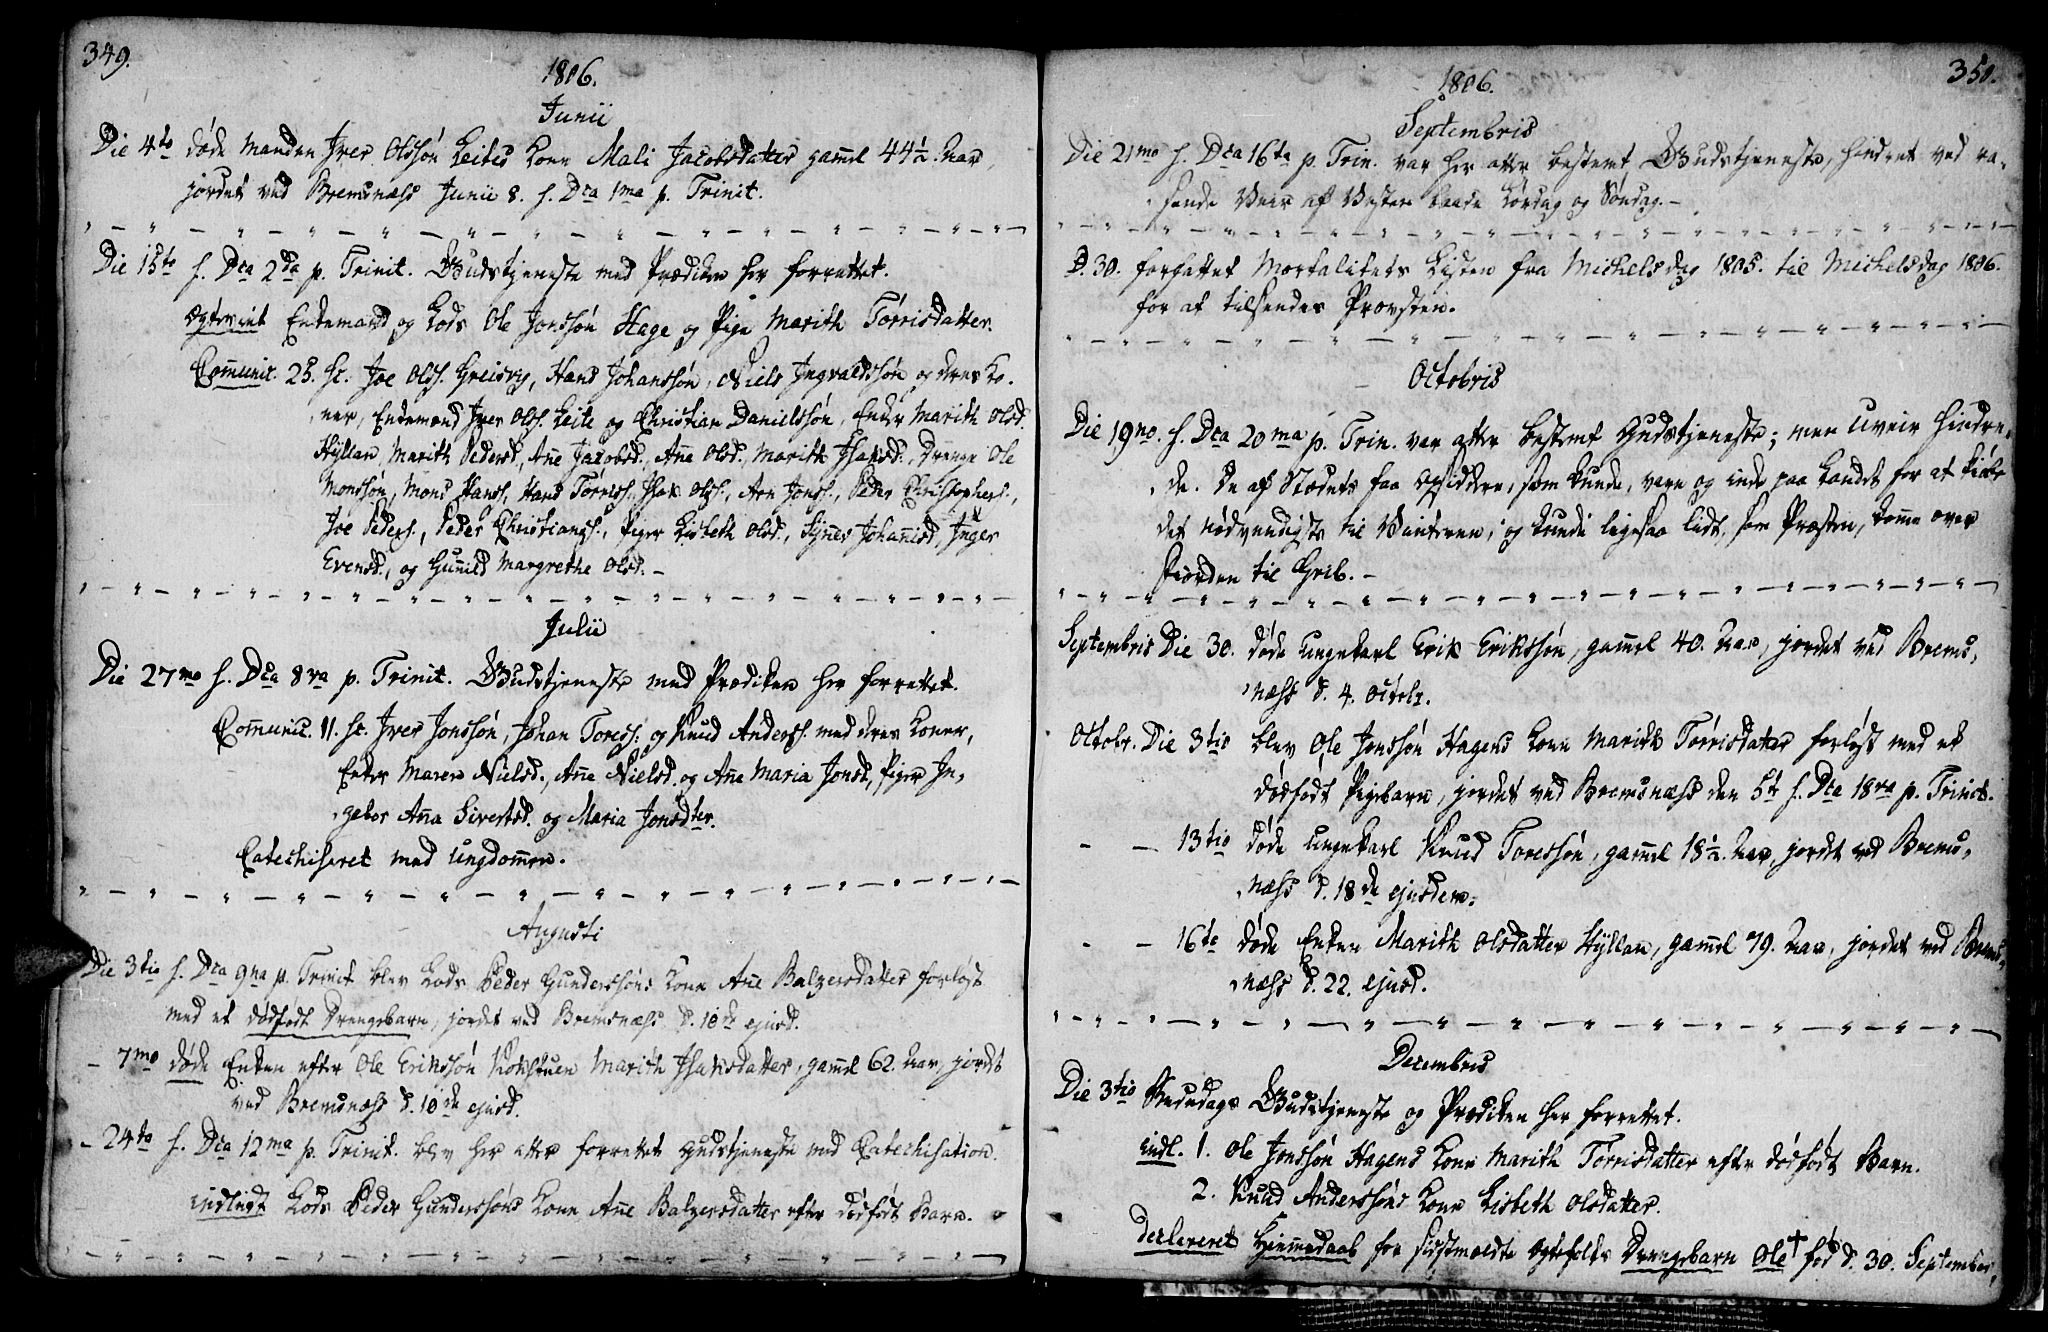 349.
1806.
Junii
Die 4to døde Manden Iver Olssøn Leites Kone Mali Jacobsdatter gaml 44½ Aar,
jordet ved Bremsnæss Junii 8. f. Dca 1ma p. Trinit.
Die 15to f. Dca 2da p. Trinit. Gudstjeneste med Prædiken her forrettet.
Ægteviet Enkemand og Lods Ole Jonssøn Hage og Pige Marith Torrisdatter.
Com̅unic. 25. sc. Joe Olss. Greisvig, Hans Johanssøn, Niels Ingvaldssøn og deres Ko-
ner, Enkemænd Iver Olss. Leite og Christian Danielssøn, Enker Marith Olsd.
Hyllan, Marith Pedersd., An̅e Jacobsd., An̅e Olsd., Marith Isaksd., Drenge Ole
Monssøn, Mons Hanss., Hans Torriss., Isak Olss., Arn Jonss., Peder Christophers.,
Joe Peders., Peder Christianss., Piger Lisbeth Olsd., Synnev Johan̅isd., Inger
Evensd., og Gun̅ild Margrethe Olsd. –
Julii
Die 27mo f. Dca 8va p. Trinit. Gudstjeneste med Prædiken her forrettet.
Com̅unic. 11. sc. Iver Jonssøn, Johan Toress. og Knud Anderss. med deres Koner,
Enker Maren Nielsd., An̅e Nielsd. og An̅e Maria Jonsd., Piger In-
gebor An̅a Sivertsd. og Maria Jonsdter.
Catechiseret med Ungdom̅en.
Augusti
Die 3tio f. Dca 9na p. Trinit. blev Lods Peder Gunderssøns Kone An̅e Balzersdatter forløst
med et dødfødt Drengebarn, jordet ved Bremsnæss d. 10de ejusd.
– 7mo døde Enken efter Ole Erikssøn Marith Isaksdatter, gaml 62. Aar, jordet
ved Bremsnæss d. 10de ejusd.
– 24to f. Dca 12ma p. Trinit. blev her atter forrettet Gudstjeneste med Catechisation.
Indledt Lods Peder Gunderssøns Kone An̅e Balzersdatter efter dødfødt Barn.
350.
1806.
Septembris
Die 21mo f. Dca 16ta p. Trin. var her atter bestemt Gudstjeneste, hindret ved ra-
sende Veir af Vesten baade Lørdag og Søndag. –
D. 30. forfattet Mortalitets Listen fra Michelsdag 1805. til Michelsdag 1806.
for at tilsendes Provsten.
Octobris
Die 19no. f. Dca 20ma p. Trin. var atter bestemt Gudstjeneste; men Uveir hindre-
de. De af Stedets faa Opsiddere, som kunde, vare og inde paa Landet for at kiøbe
det nødvendigste til Vinteren; og kunde ligesaa lidt, som Præsten, kom̅e over
Fiorden til Grib. –
Septembris Die 30. døde Ungekarl Erik Erikssøn, gam̅el 40. Aar, jordet ved Brems-
næss d. 4. Octobr.
Octobr. Die 3tio blev Ole Jonssøn Hagens Kone Marith Torrisdatter forløst med et
dødfødt Pigebarn, jordet ved Bremsnæss den 5te f. Dca 18va p. Trinit.
– – 13tio døde Ungekarl Knud Toressøn, gam̅el 18½ Aar, jordet ved Brems-
næss d. 18de ejusdem.
– – 16to døde Enken Marith Olsdatter Hyllan, gam̅el 79. Aar, jordet ved Brems-
næss d. 22. ejusd.
Decembris
Die 3tio Gudstjeneste og Prædiken her forrettet.
Indl. 1. Ole Jonssøn Hagens Kone Marith Torrisdatter efter dødfødt Barn.
2. Knud Anderssøns Kone Lisbeth Olsdatter.
Declareret Hjem̅edaab for sidstmeldte Ægtefolks Drengebarn Ole† fød d. 30. September,